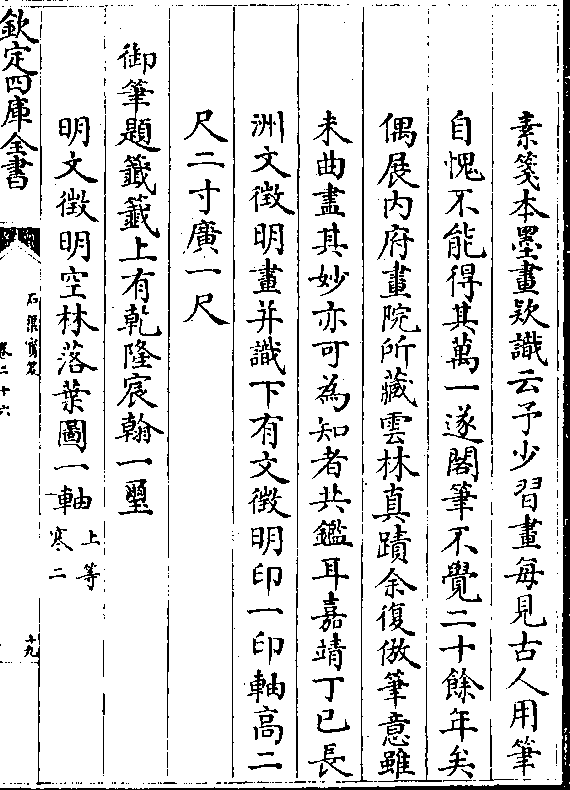 素箋本墨畫欵識云予少習畫每見古人用筆
自愧不能得其萬一遂閣筆不覺二十餘年矣
偶展内府畫院所藏雲林真蹟余復倣筆意雖
未曲盡其妙亦可為知者共鑑耳嘉靖丁已長
洲文徴明畫并識下有文徴明印一印軸高二
尺二寸廣一尺
御筆題籤籤上有乾隆宸翰一璽
明文徴明空林落葉圖一軸 上等 寒二
欽定四庫全書
石渠寳笈
卷二十六
十九